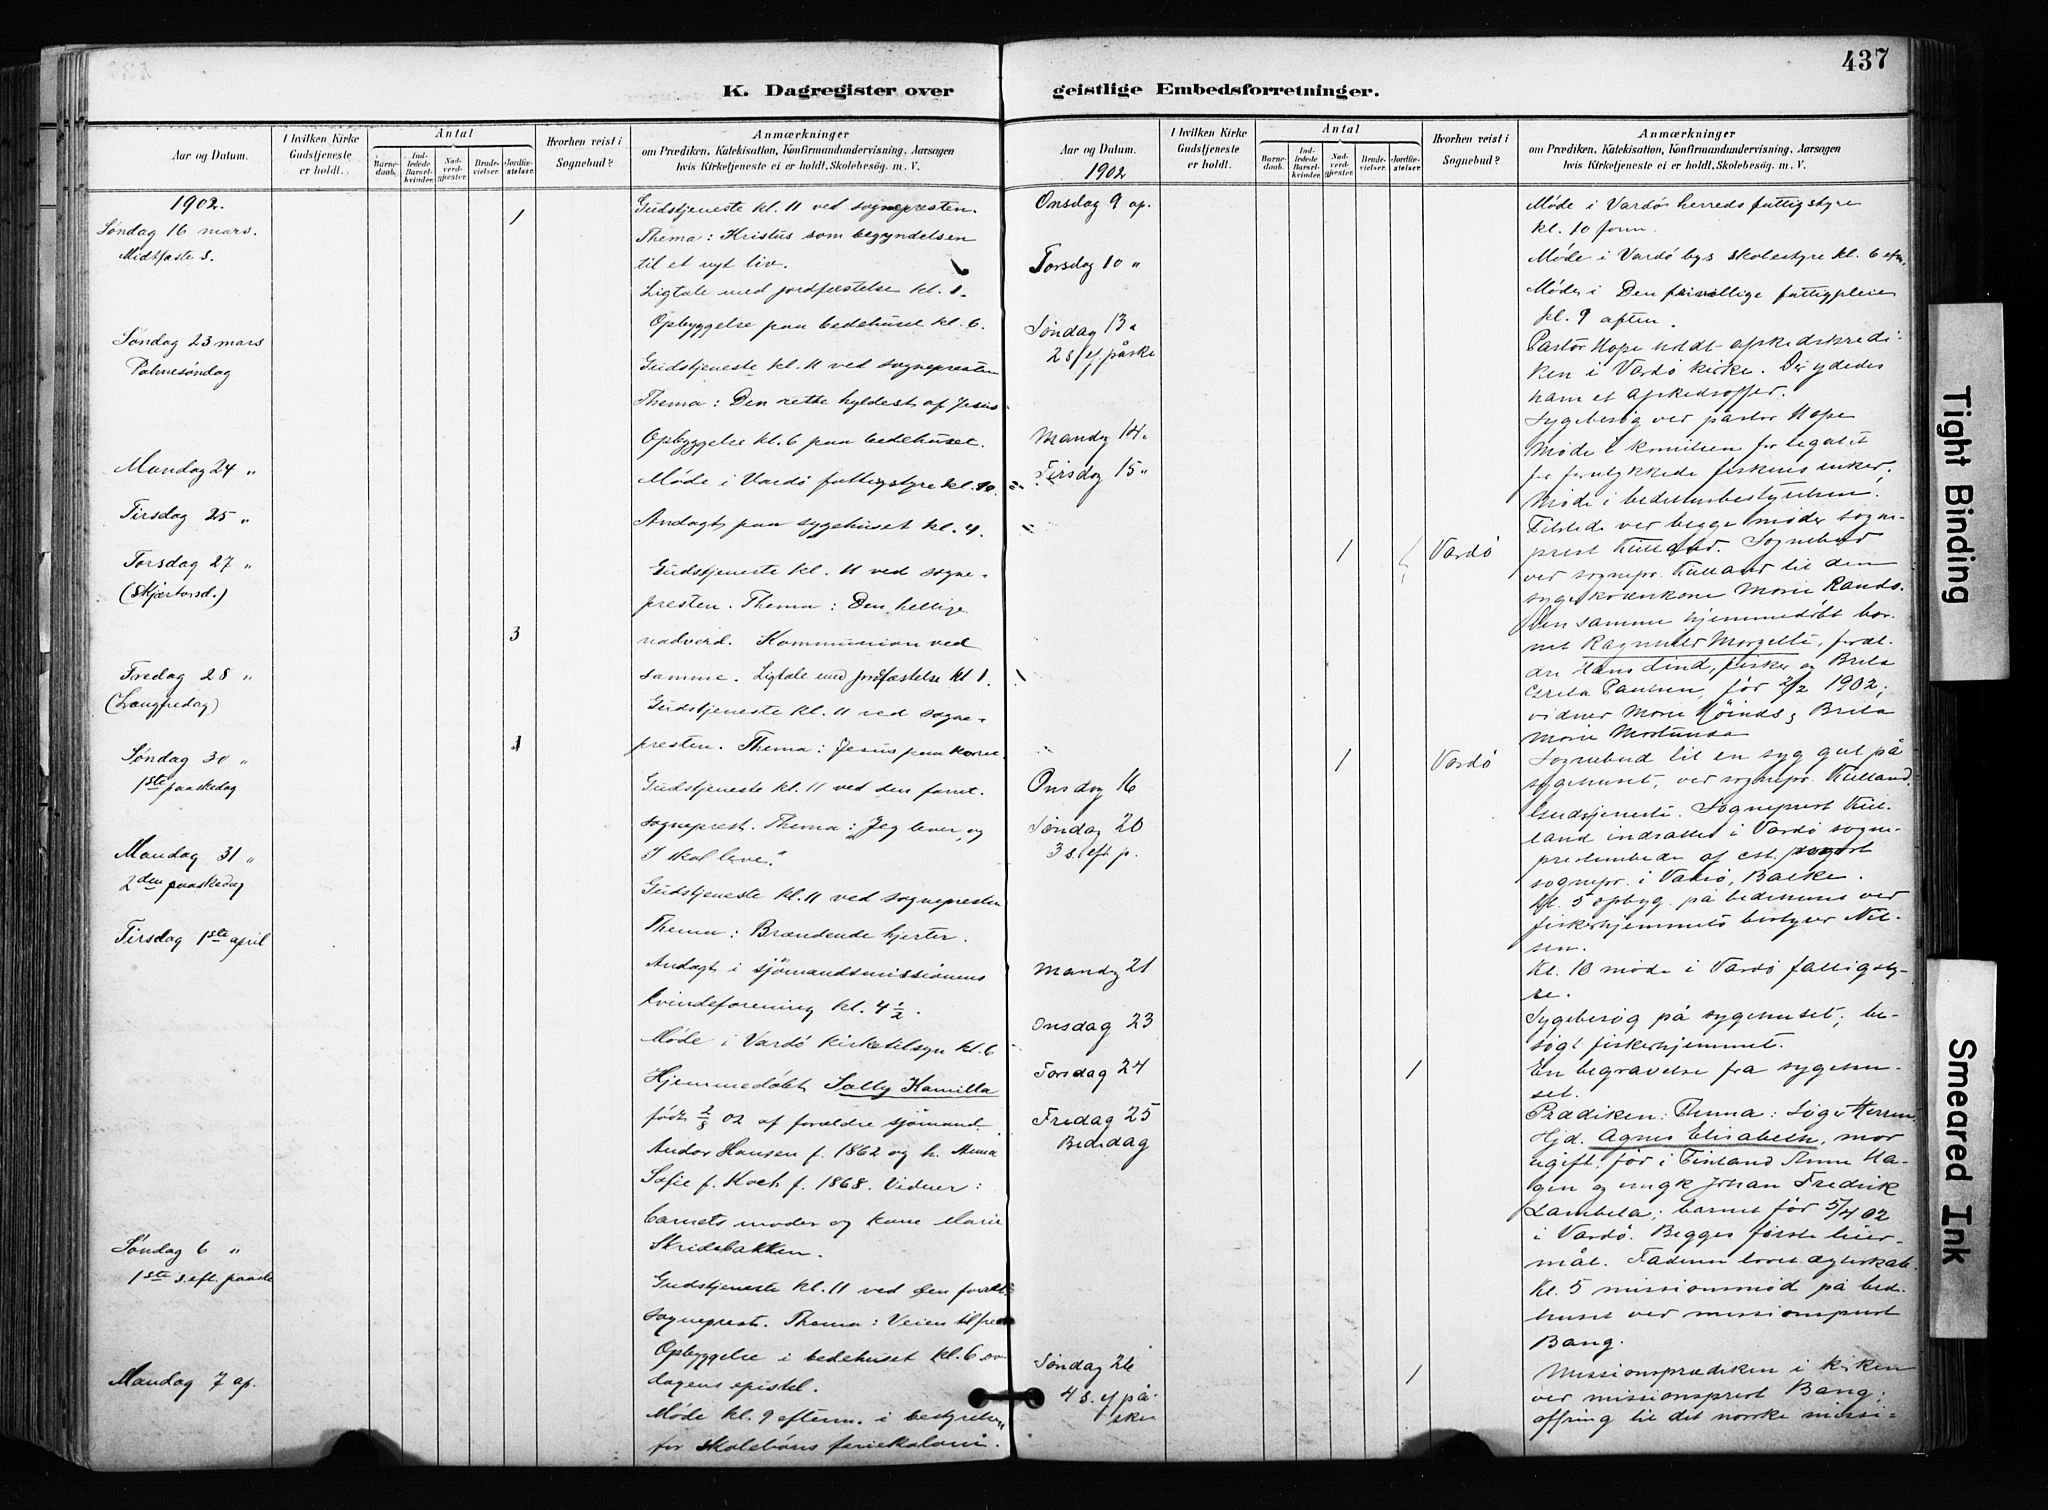 437
K. Dagregister over geistlige Embedsforretninger.
Aar og Datum.
I hvilken Kirke Gudstjeneste er holdt.
Antal
Barnedaab.
Indledede Barselkvinder.
Nadverdgjester.
Brudevielser.
Jordfæstelser.
Hvorhen reist i Sognebud?
Anmærkninger
om Prædiken, Katekisation, Konfirmandundervisning, Aarsagen
hvis Kirketjeneste ei er holdt, Skolebesøg. m. V.
1902.
Søndag 16 mars.
Midtfaste s.
1
Gudstjeneste kl. 11 ved sognepresten.
Thema: Kristus som begyndelsen
til et nyt liv.
Ligtale med jordfæstelse kl. 1.
Opbyggelse paa bedehuset kl. 6.
Søndag 23 mars
Palmesøndag
Gudstjeneste kl. 11 ved sognepresten
Thema: Den rette hyldest af Jesus
Opbyggelse kl. 6 paa bedehuset.
Mandag 24 "
Møde i Vardø fattigstyre kl. 10.
Tirsdag 25 "
Andagt paa sygehuset kl. 4.
Torsdag 27 "
(Skjærtorsd.)
Gudstjeneste kl. 11 ved sogne-
presten. Thema: Den hellige
3
nadverd. Kommunion ved
samme. Ligtale med jordfæstelse kl 1.
Fredag 28 "
(Langfredag)
Gudstjeneste kl. 11 ved sogne-
presten. Thema: Jesus paa korset
Søndag 30 "
1ste paaskedag
1
Gudstjeneste kl. 11 ved den forret.
sogneprest. Thema: "Jeg lever, og
I skal leve".
Mandag 31 "
2den paaskedag
Gudstjeneste kl. 11 ved sognepresten
Thema: Brændende hjerter.
Tirsdag 1ste april
Andagt i sjømandsmissionens
kvindeforening kl. 4 1/2.
Møde i Vardø kirketilsyn kl. 6
Hjemmedøbt Sally Kamilla
født 2/3 02 af forældre sjømand
Andor Hansen f. 1862 og h. Anna
Sofie f. Koch f. 1868. Vidner:
barnets moder og kone Marie
Skridebakken.
Søndag 6 "
1ste s. eft. paaske
Gudstjeneste kl. 11 ved den forrett.
sogneprest. Thema: Veien til fred
Opbyggelse i bedehuset kl. 6 ov.
dagens epistel.
Mandag 7 ap.
Møde kl. 9 efterm. i bestyrelsen
for skolebørns feriekoloni.
Aar og Datum.
1902
I hvilken Kirke Gudstjeneste er holdt.
Antal
Barnedaab.
Indledede Barselkvinder.
Nadverdgjester.
Brudevielser.
Jordfæstelser.
Hvorhen reist i Sognebud?
Anmærkninger
om Prædiken, Katekisation, Konfirmandundervisning, Aarsagen
hvis Kirketjeneste ei er holdt, Skolebesøg. m. V.
Onsdag 9 ap.
Møde i Vardø herreds fattigstyre
kl. 10 form.
Torsdag 10 "
Møde i Vardø bys skolestyre kl. 6 eftm.
Møde i Den frivillige fattigpleie
kl. 9 aften.
Søndag 13 "
2 s. ef. påske
Pastor Hope holdt afskedspredi-
ken i Vardø kirke. Der ydedes
ham et afskedsoffer.
Mandg 14 "
Sygebesøg ved pastor Hope
Tirsdag 15 "
Møde i komiteen for legatet
for forulykkede fiskeres enker.
Møde i bedehusbestyrelsen.
Tilstede ved begge møder sogne-
1
Vardø
prest Kielland. Sognebud
ved sognepr. Kielland til den
syge Marie Rands.
Den samme hjemmedøbt bar-
net Ragnhild Margethe, foræl-
dre Hans Lind, fisker og Brita
Greta Paulsen, før 2/2 1902;
vidner Marie & Brita
Marie
1
Vardø
Onsdag 16
Sognebud til en syg gut på
sygehuset, ved sognepr. Kielland.
Søndag 20
3 s. eft. p.
Gudstjeneste. Sogneprest Kiel-
land indsattes i Vardø sogne-
prestembede af cst.
sognepr. i Vadsø, Balke.
Kl. 5 opbyg. på bedehuset ved
fiskerhjemmets bestyrer Nil-
sen.
Mandg 21
Kl. 10 møde i Vardø fattigsty-
re.
Onsdag 23
Sygebesøg på sygehuset; be-
søgt fiskerhjemmet.
Torsdag 24
1
En begravelse fra sygehu-
set.
Fredag 25
Bededag
Prædiken: Thema: Søg Herren
Hjd. Agnes Elisabeth, mor
ugift. før i Finland Anna Ha-
gen og ungk Johan Fredrik
Lambela; barnet før 5/4 02
i Vardø. Begges første leier-
mål. Faderen lovet ægteskab.
Kl. 5 missionsmød på bed-
huset ved missionsprest
Bang.
Søndag 26
4 s. ef på-
ske
1
Missionsprædiken i kirken
ved missionsprest Bang;
ofring til det norske missi-
Tight Binding
Smeared Ink